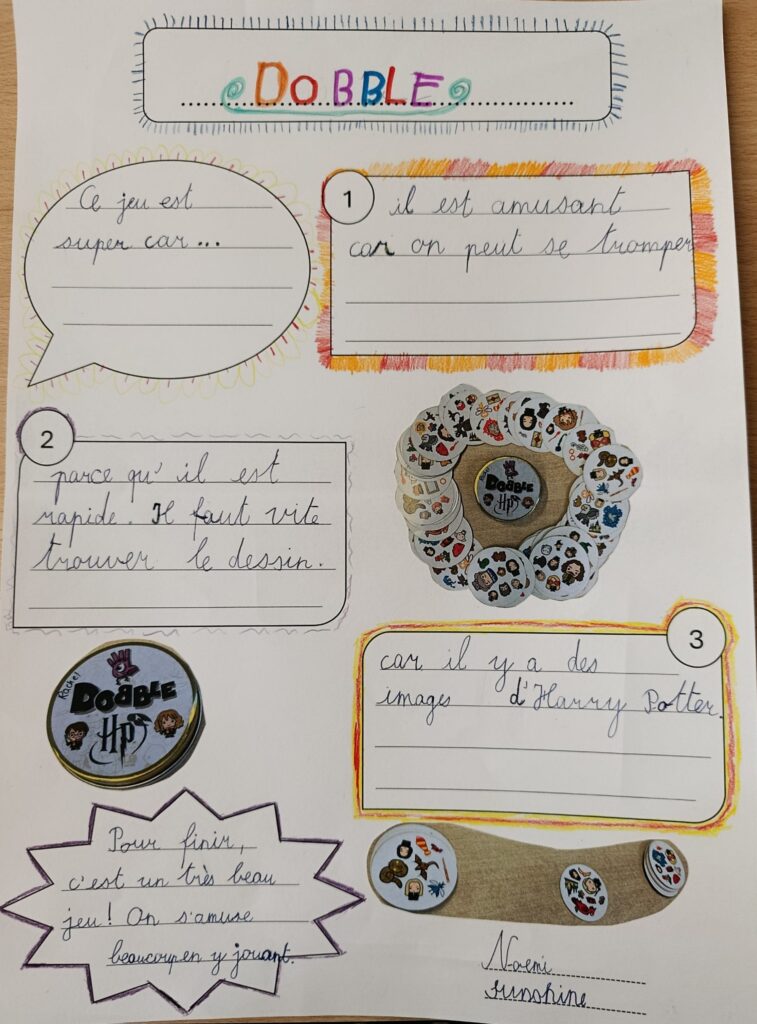 DOBBLE
Ce jeu est
super car...
1
il est amusant
car on peut se tromper
2
parce qu'il est
rapide. Il faut vite
trouver le dessin.
DOBBLE
HP
Rachel
DOBBLE
HP
3
car il y a des
images d'Harry Potter.
Pour finir,
c'est un très beau
jeu! On s'amuse
beaucoup en y jouant.
Noemi
sunshine